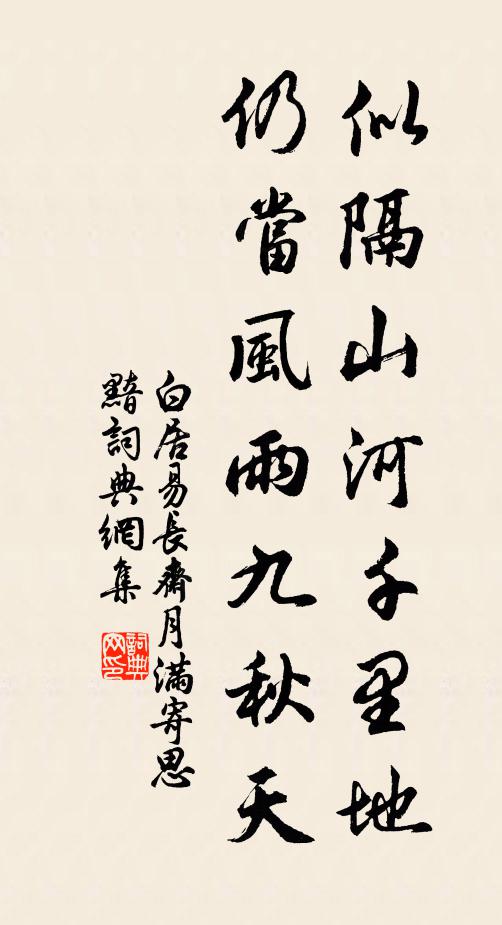 似隔山河千里地
仍當風雨九秋天
白居易長齋月滿寄思
黯詞典網集
詞典
网印